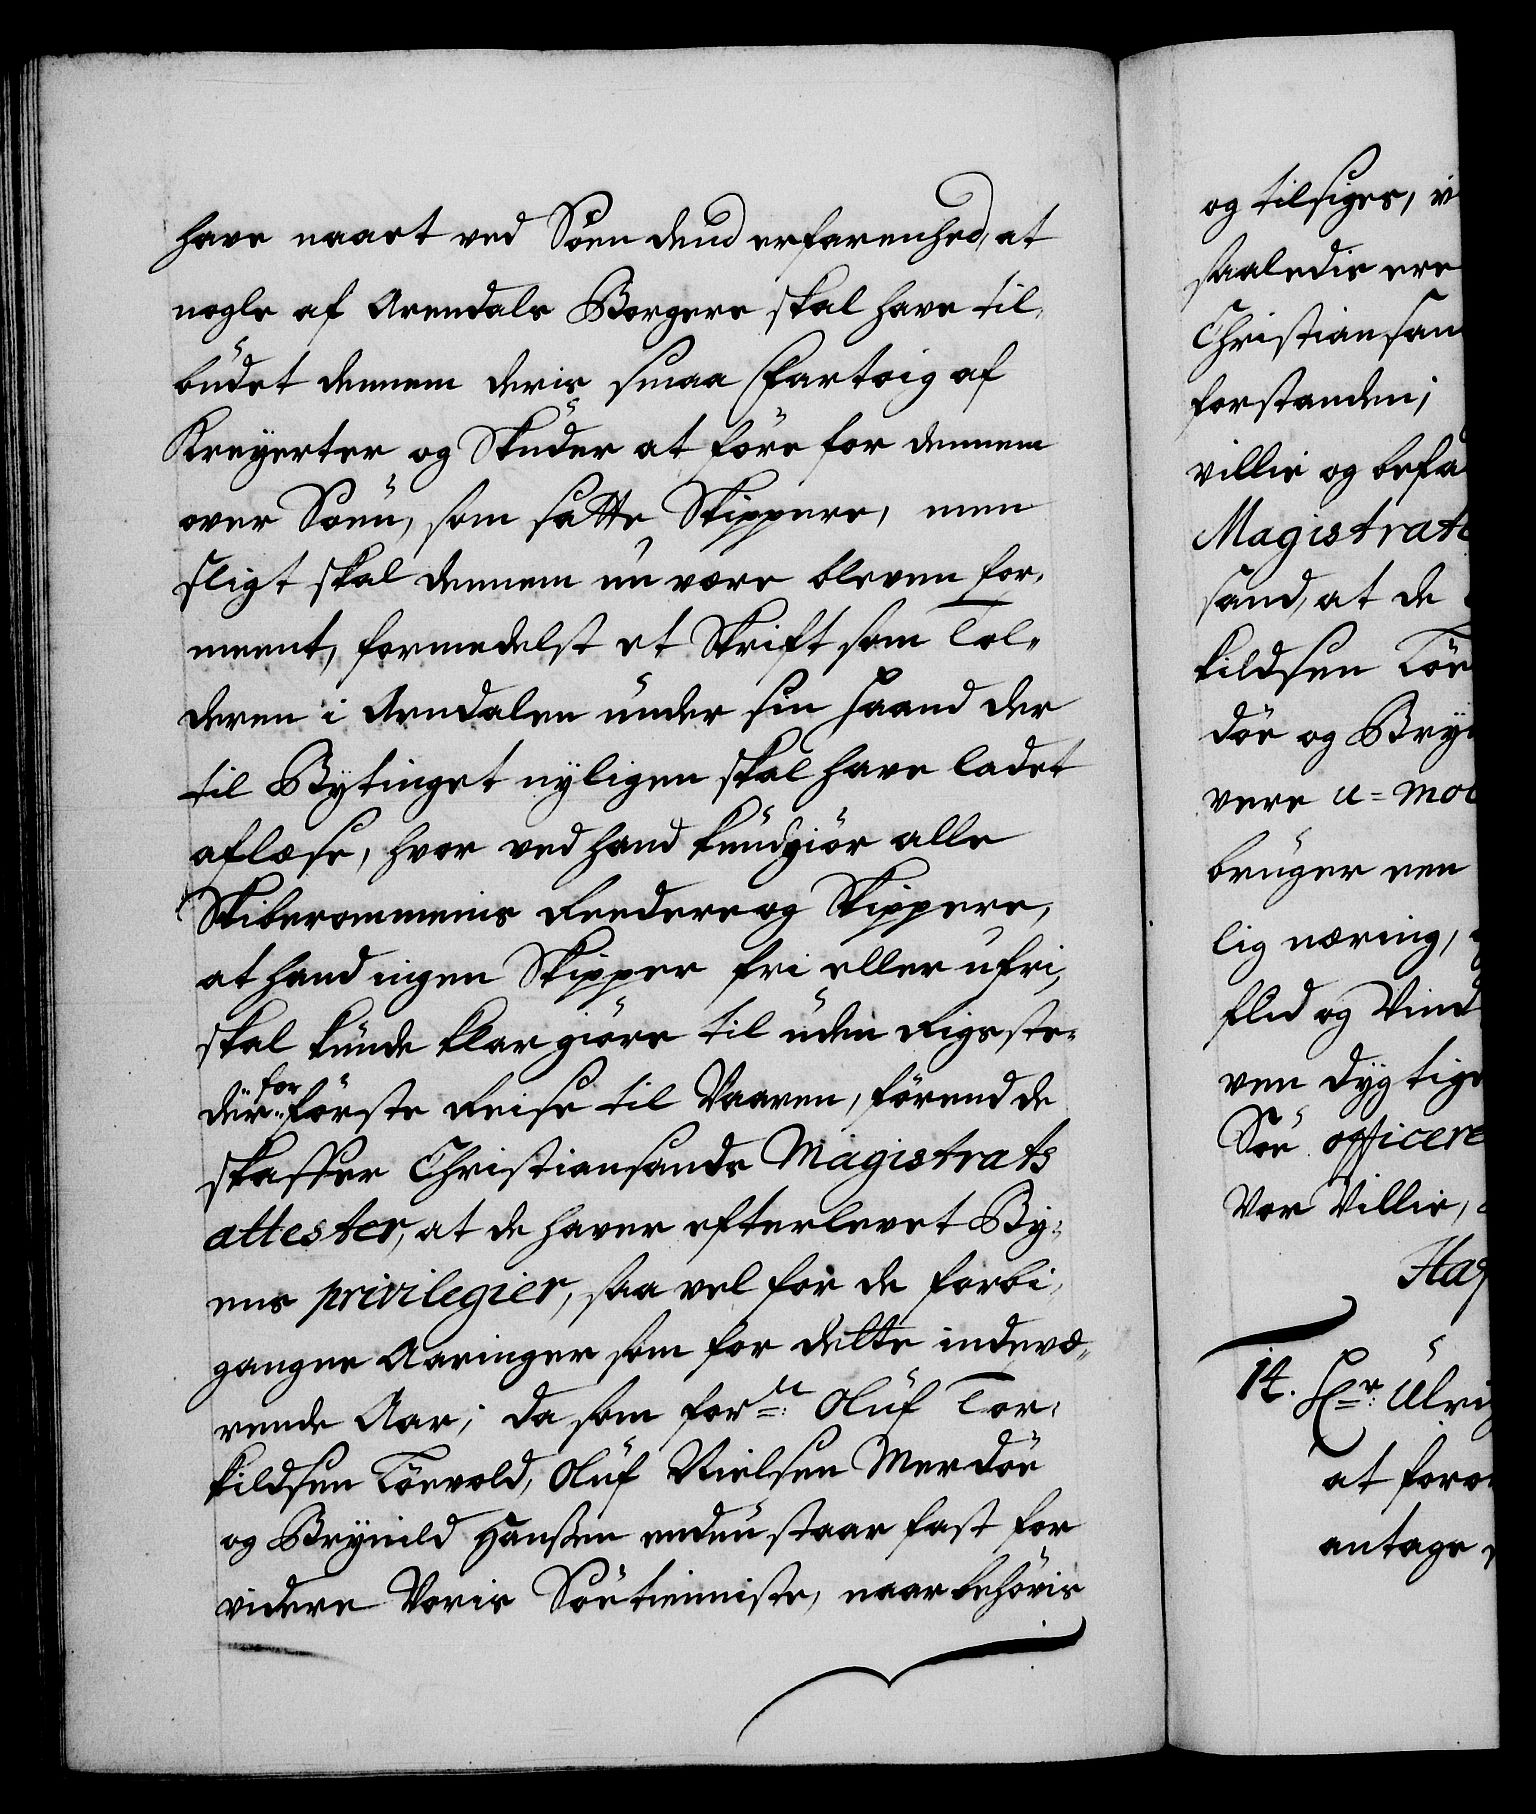 have naaet ved Söen dend erfarenhed, at
nogle af Arendals Borgere skal have til,
büdet dennem deris smaa Fartöig af
Kreyerter og Skuder at före for dennem
over Söen, som satte Skippere, men
sligt skal dennem nu være bleven for,
meent, formedelst et Skrift som Tol„
deren i Arndalen ünder sin Haand der
til Bytinget nyligen skal have ladet
aflæse, hvor ved hand kündgiör alle
Skiberommenis Reedere og Skippere,
at hand ingen Skipper fri eller ufri,
skal künde klargiöre til üden Rigs ste„
der for förste Reise til Vaaren, förend de
skaffer Christiansands Magistrats
attester, at de haver efterlevet By„
ens privilegier, saa vel for de forbi,
gangne Aaringer som for dette indevæ„
rende Aar; da som for.ne Olüf Tor,
kildsen Törvold, Olüf Nielsen Merdöe
og Brynild Hanssen endnü staar fast for
videre Voris Söetienniste, naar behövis
og tilsiges, v
saaledis ere
Christiansan
forstanden;
villie og befa
Magistrate
sand, at de
kildsen Tör
döe og Bry
vere u=mo
brüger een
lig næring,
flid og Vind
ven dygtige
Söe officere
Vor Villie,
Haf
14. Hr: Ülri
at for
antage